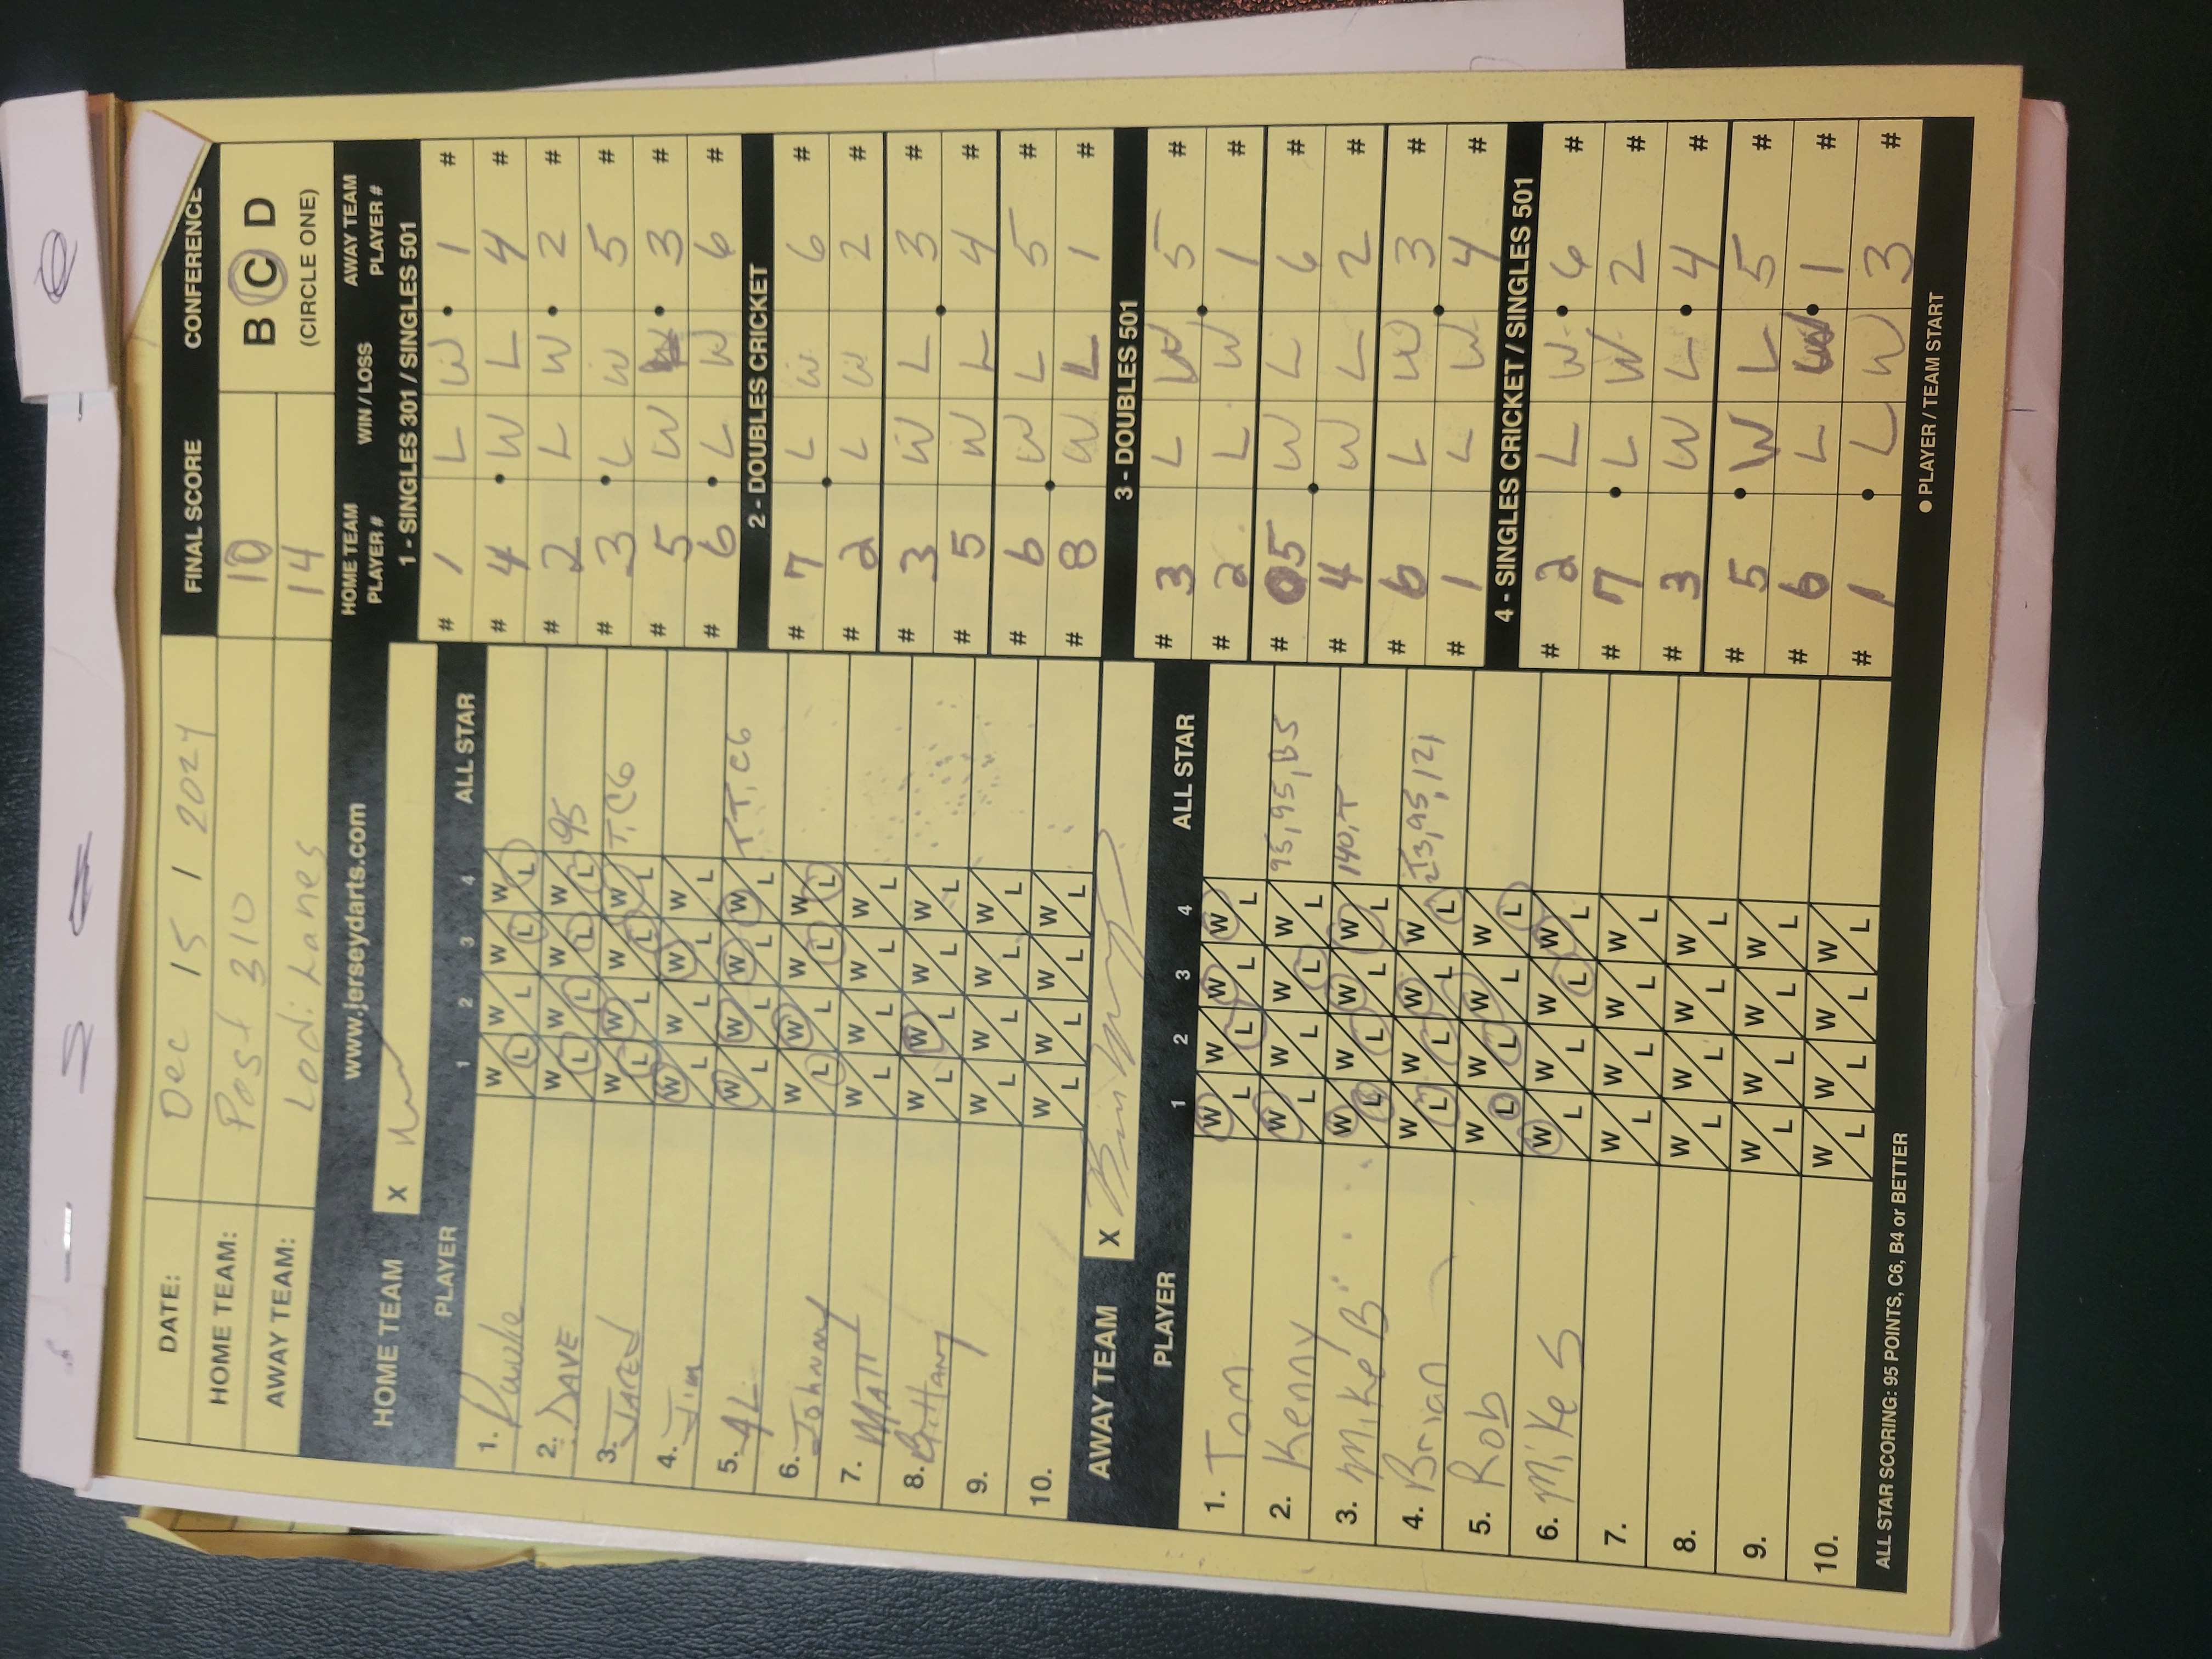 DATE: Dec 15 / 2024 FINAL SCORE CONFERENCE
HOME TEAM: Post 310 10 B C D
AWAY TEAM: Lodi Lanes 14 (CIRCLE ONE)
www.jerseydarts.com
HOME TEAM X
PLAYER 1 2 3 4 ALL STAR
1. W L W L W L W L
2. DAVE W L W L W L W L 95
3. JARED W L W L W L W L T, C6
4. Jim W L W L W L W L
5. AL W L W L W L W L TT, C6
6. Johnny W L W L W L W L
7. MATT W L W L W L W L
8. Brittany W L W L W L W L
9. W L W L W L W L
10. W L W L W L W L
AWAY TEAM X
PLAYER 1 2 3 4 ALL STAR
1. Tom W L W L W L W L
2. Kenny W L W L W L W L 95, 95, B5
3. Mike B W L W L W L W L 140, T
4. Brian W L W L W L W L 95, 121
5. Rob W L W L W L W L
6. Mike S W L W L W L W L
7. W L W L W L W L
8. W L W L W L W L
9. W L W L W L W L
10. W L W L W L W L
ALL STAR SCORING: 95 POINTS, C6, B4 or BETTER
HOME TEAM PLAYER # WIN / LOSS AWAY TEAM PLAYER #
1 - SINGLES 301 / SINGLES 501
# 1 L W 1 #
# 4 W L 4 #
# 2 L W 2 #
# 3 L W 5 #
# 5 W 3 #
# 6 L W 6 #
2 - DOUBLES CRICKET
# 7 L W 6 #
# 2 L W 2 #
# 3 W L 3 #
# 5 W L 4 #
# 6 W L 5 #
# 8 W L 1 #
3 - DOUBLES 501
# 3 L W 5 #
# 2 L W 1 #
# 5 W L 6 #
# 4 W L 2 #
# 6 L W 3 #
# 1 L W 4 #
4 - SINGLES CRICKET / SINGLES 501
# 2 L W 6 #
# 7 L W 2 #
# 3 W L 4 #
# 5 W L 5 #
# 6 L W 1 #
# 1 L W 3 #
● PLAYER / TEAM START